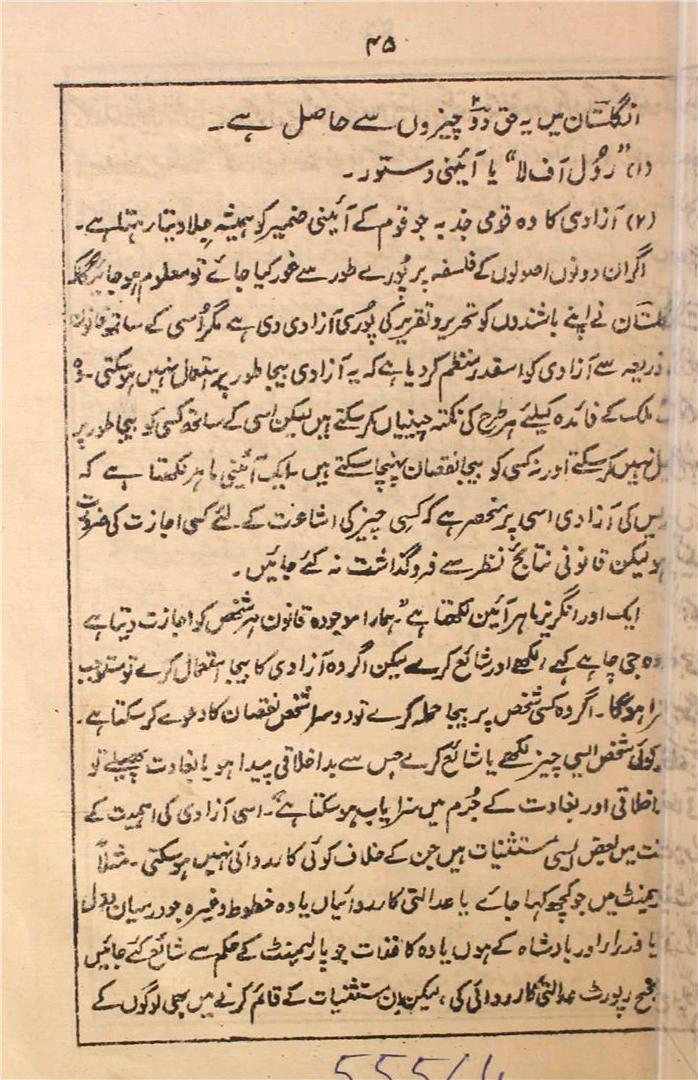 ۴۵
انگلستان میں یہ حق دو۲ چیزوں سے حاصل ہے۔
(۱) "رُول آف لا" یا آئینی دستور۔
(۲) آزادی کا وہ قومی جذبہ جو قوم کے آئینی ضمیر کو ہمیشہ جِلا دیتا رہتا ہے۔
اگر ان دونوں اصولوں کے فلسفہ پر پُورے طور سے غور کیا جائے تو معلوم ہو جائیگا کہ
نے اپنے باشندوں کو تحریر و تقریر کی پوری آزادی دی ہے مگر اُسی کے ساتھ قانون
ذریعہ سے آزادی کو اسقدر منظم کر دیا ہے کہ یہ آزادی بیجا طور پر استعمال نہیں ہو سکتی۔ وہ
ملک کے فائدہ کیلئے ہر طرح کی نکتہ چینیاں کر سکتے ہیں لیکن اسی کے ساتھ کسی کو بیجا طور پر
نہیں کر سکتے اور نہ کسی کو بیجا نقصان پہنچا سکتے ہیں۔ ایک آئینی ماہر لکھتا ہے کہ
کی آزادی اسی پر منحصر ہے کہ کسی چیز کی اشاعت کے لئے کسی اجازت کی ضرورت
ہو لیکن قانونی نتائج نظر سے فروگذاشت نہ کئے جائیں۔
ایک اور انگریز ماہر آئین لکھتا ہے "ہمارا موجودہ قانون ہر شخص کو اجازت دیتا ہے
وہ جی چاہے کہے، لکھے اور شائع کرے لیکن اگر وہ آزادی کا بیجا استعمال کرے تو مستوجب
ہوگا۔ اگر وہ کسی شخص پر بیجا حملہ کرے تو دوسرا شخص نقصان کا دعوے کر سکتا ہے۔
کوئی شخص ایسی چیز لکھے یا شائع کرے جس سے بداخلاقی پیدا ہو یا بغاوت پھیلے تو
اخلاقی اور بغاوت کے جُرم میں سزا یاب ہو سکتا ہے"۔ اسی آزادی کی اہمیت کے
میں بعض ایسی مستثنیات ہیں جن کے خلاف کوئی کارروائی نہیں ہو سکتی۔ مثلاً
میں جو کچھ کہا جائے یا عدالتی کارروائیاں یا وہ خطوط وغیرہ جو درمیان
یا وزراء اور بادشاہ کے ہوں یا وہ کاغذات جو پارلیمنٹ کے حکم سے شائع کئے جائیں
رپورٹ عدالتی کارروائی کی، لیکن ان مستثنیات کے قائم کرنے میں بھی لوگوں کے